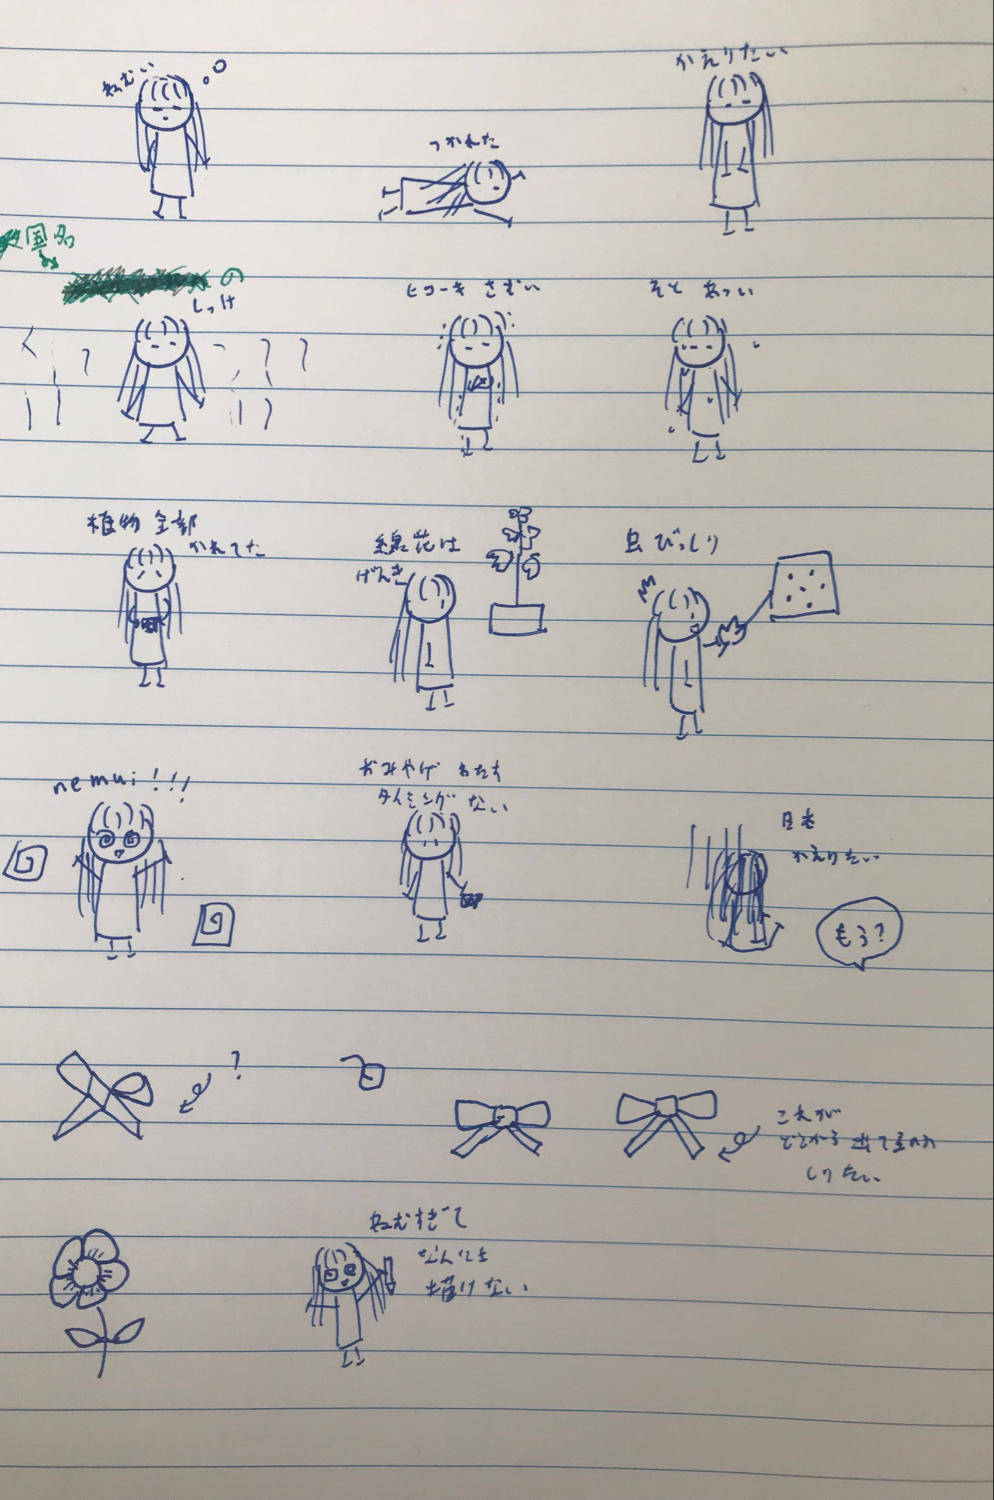 ねむい
つかれた
かえりたい
国名
の
しっけ
ヒコーキ さむい
そと あつい
植物 全部
かれてた
綿花は
げんき
虫びっしり
nemui!!!
おみやげ わたす
タイミング ない
日も
かえりたい
もう?
?
これが
どこから 出てるのか
しりたい
ねむすぎて
なんにも
描けない